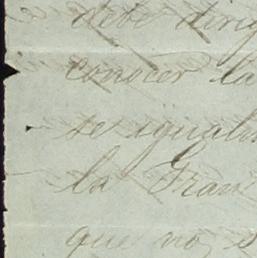 debe dirig
conocer la
se iguali
la Fran
que no s